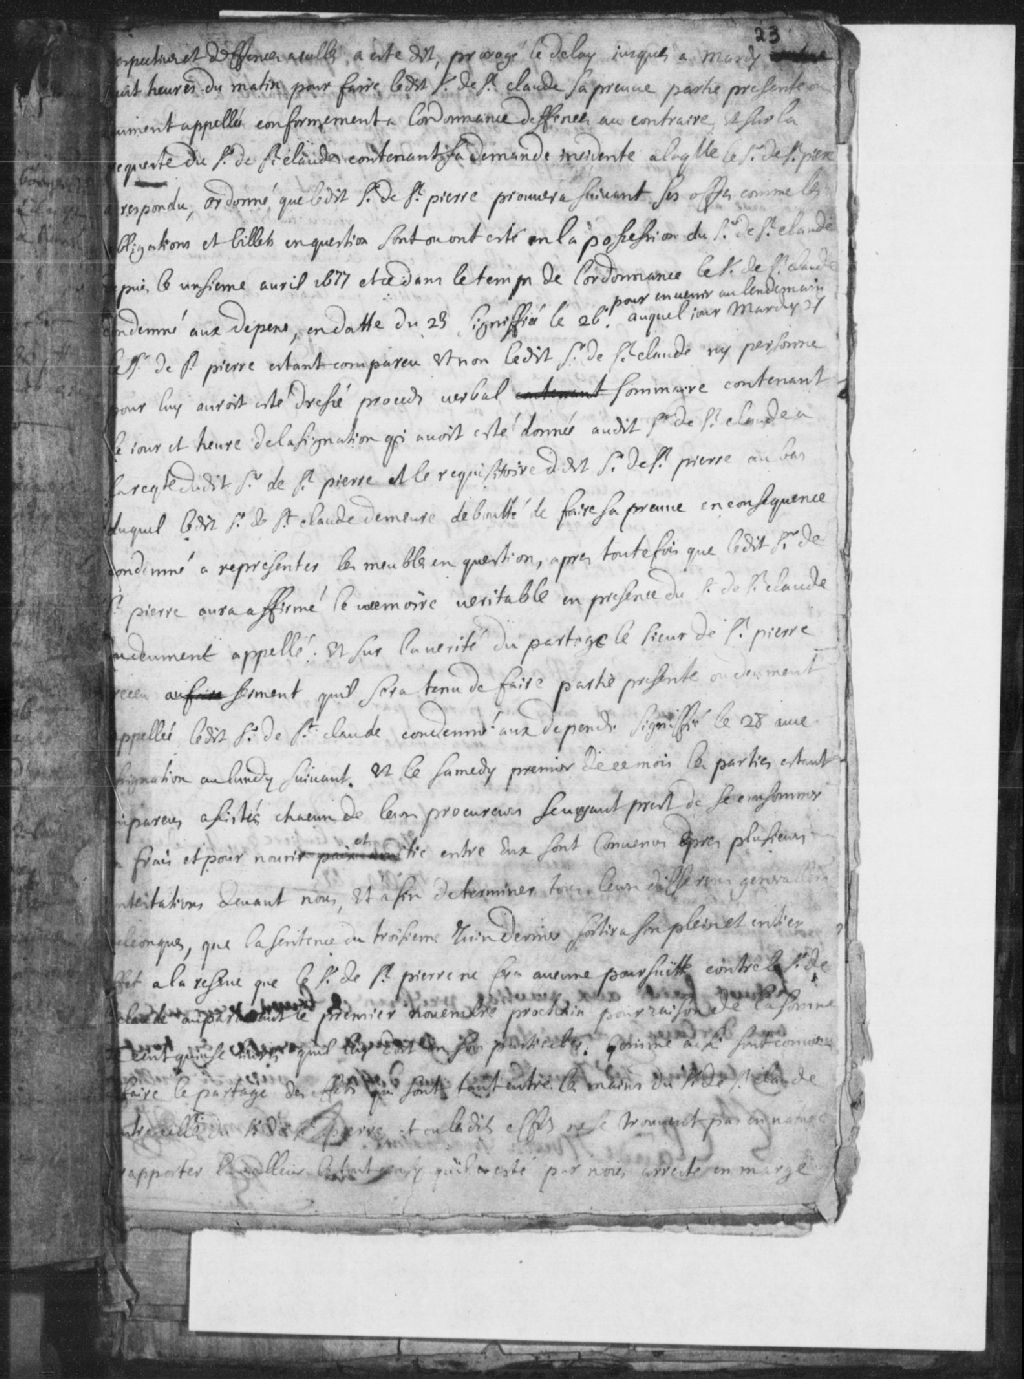 23
respectives et deffences a celles, a esté dit, prorogé le delay iusques a mardy
huit heures du matin pour faire ledit Sr. de St. claude sa preuue partie presente ou
duement appellé conformement a lordonnance deffences au contraire, & sur la
requeste du Sr. de St. claude contenant sa demande incidente a laqlle le Sr. de St. pierre
a respondu, ordonné que ledit Sr. de St. pierre prouuera suiuant ses offres comme les
obligations et billets en question sont ou ont esté en la possession du Sr. de St. claude
depuis le unsieme auril 1677 et ce dans le temps de lordonnance le Sr. de St. claude
pour en uenir au lendemain
condemné aux depens, en datte du 23 signiffié le 26. auquel iour Mardy 27
le Sr. de St. pierre estant compareu et non ledit Sr. de St. claude ny personne
pour luy auroit esté dressé procedz uerbal contenant sommaire contenant
le iour et heure de lasignation qi auoit esté donnée audit Sr. de St. claude a
la reqte dudit Sr. de St. pierre et le requisitoire dudit Sr. de St. pierre au bas
duquel ledit Sr. de St. claude demeure deboutté de faire sa preuue en consequence
condemné a representer les meubles en question, apres toutefois que ledit Sr. de
St. pierre aura affirmé le memoire ueritable en presence du Sr. de St. claude
ou deument appellé. Et sur la uerité du partage le sieur de St. pierre
receu au faire serment quil sera tenu de faire partie presente ou deument
appellée ledit Sr. de St. claude condemné aux depends signiffié le 28 auec
assignation au lundy suiuant. Et le samedy premier de ce mois les parties estant
compareus assistés chacun de leurs procureurs se uoyant prest de se consommer
en frais et pour nourir paix et amitié entre eux sont conuenus apres plusieurs
contestations deuant nous, et afin de terminer tous leurs differens generallement
quelconques, que la sentence du troisieme Iuin dernier sortira son plein et entier
effet a la reserue que le Sr. de St. pierre ne fera aucune poursuitte contre le Sr. de
St. claude auparauant le premier nouembre prochain pour raison de la somme
de cent quinse liures quil luy doit en son particulier. Comme aussi sont conuenus
de faire le partage des effets qui sont tant entre les mains du Sr. de St. claude
entre celles du Sr. de St. pierre et ou lesdits effets ne se trouuent pas en nature
rapporter la ualleur le tout ainsy quil a esté par nous arresté en marge